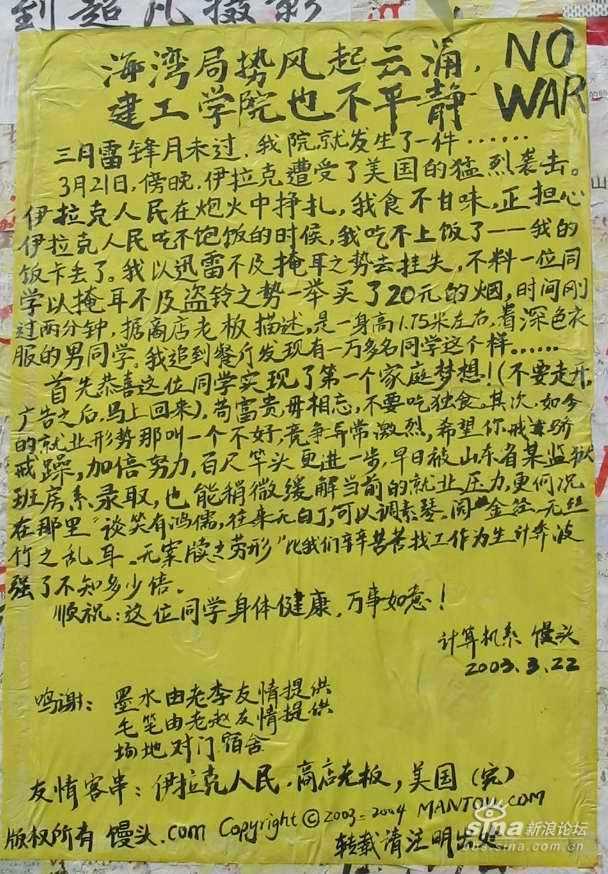 到超凡摄影
海湾局势风起云涌,
建工学院也不平静
NO
WAR
三月雷锋月未过,我院就发生了一件……
3月21日,傍晚,伊拉克遭受了美国的猛烈袭击。
伊拉克人民在炮火中挣扎,我食不甘味,正担心
伊拉克人民吃不饱饭的时候,我吃不上饭了——我的
饭卡丢了。我以迅雷不及掩耳之势去挂失,不料一位同
学以掩耳不及盗铃之势一举买了20元的烟,时间刚
过两分钟,据商店老板描述,是一身高1.75米左右,着深色衣
服的男同学。我追到餐厅发现有一万多名同学这个样……
首先恭喜这位同学实现了第一个家庭梦想!(不要走开,
广告之后,马上回来),苟富贵毋相忘,不要吃独食。其次,如今
的就业形势那叫一个不好,竞争异常激烈,希望你戒骄
戒躁,加倍努力,百尺竿头更进一步,早日被山东省某监狱
班房系录取,也能稍微缓解当前的就业压力,更何况
在那里"谈笑有鸿儒,往来无白丁,可以调素琴,阅金经。无丝
竹之乱耳。无案牍之劳形"比我们辛辛苦苦找工作为生计奔波
强了不知多少倍。
顺祝:这位同学身体健康,万事如意!
计算机系 馒头
2003.3.22
鸣谢:墨水由老李友情提供
毛笔由老赵友情提供
场地对门宿舍
友情客串:伊拉克人民.商店老板,美国(完)
版权所有 馒头.com Copyright©2003-2004 MANTOU.COM
转载请注明出处
sina新浪论坛
bbs.sina.com.cn